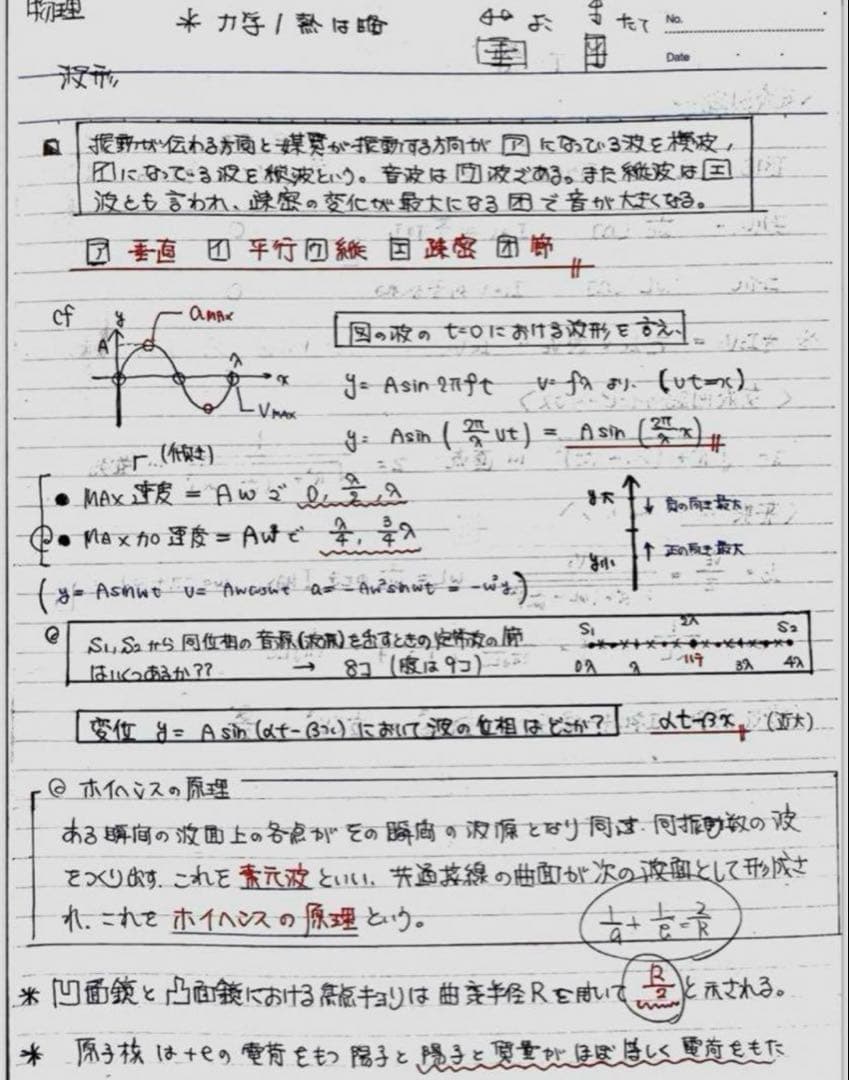 物理
* 力学/熱は略
よこ たて
No.
垂 平
Date
波形
振動が伝わる方向と媒質が振動する方向が ア になっている波を横波,
イ になっている波を縦波という。音波は ウ 波である。また縦波は エ
波とも言われ、疎密の変化が最大になる オ で音が大きくなる。
ア 垂直 イ 平行 ウ 縦 エ 疎密 オ 節
cf y aMAX
図の波の t=0 における波形を言え、
A λ x
y = A sin 2πft v = fλ より (vt=x)
VMAX
y = A sin (2π/λ vt) = A sin (2π/λ x)
(傾き)
• MAX 速度 = Aω で 0, λ/2, λ
y大 ↓ 負の向き最大
• MAX 加速度 = Aω² で λ/4, 3/4 λ
y小 ↑ 正の向き最大
(y = A sin ωt v = Aω cos ωt a = -Aω² sin ωt = -ω² y)
◎ S1, S2 から同位相の音源(波源)を出すときの定常波の節
S1 2λ S2
はいくつあるか?? → 8コ (腹は9コ)
0λ λ 3λ 4λ
変位 y = A sin (αt - βx) において波の位相はどこか? αt-βx
◎ ホイヘンスの原理
ある瞬間の波面上の各点がその瞬間の波源となり同速・同振動数の波
をつくり出す。これを素元波といい、共通接線の曲面が次の波面として形成さ
れ、これをホイヘンスの原理という。
1/a + 1/b = 2/R
* 凹面鏡と凸面鏡における焦点キョリは曲率半径Rを用いて R/2 と示される。
* 原子核は+eの電荷をもつ陽子と陽子と質量がほぼ等しく電荷をもた